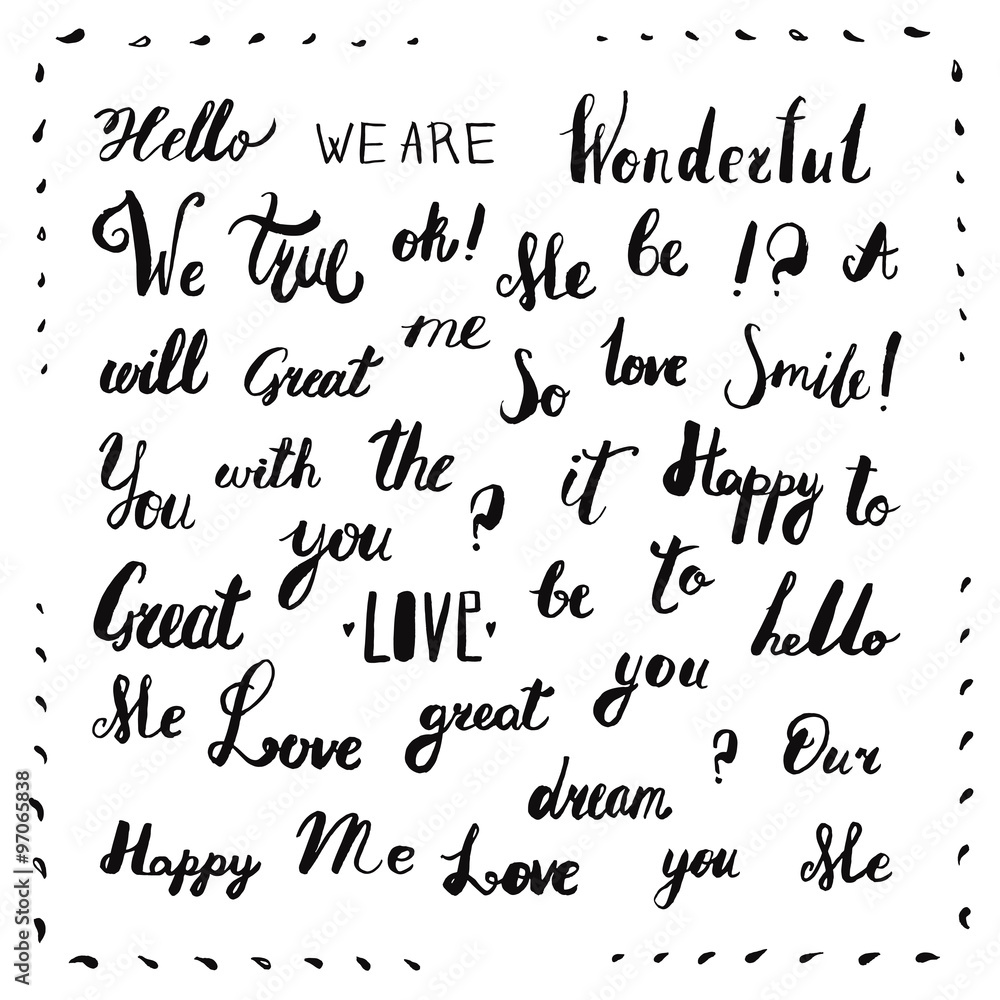 Hello WE ARE Wonderful
We true oh! Me be !? A
will Great me So love Smile!
You with the ? it Happy to
you
Great LOVE be to hello
Me Love great you ? Our
dream
Happy Me Love you Me
Adobe Stock | #97065838